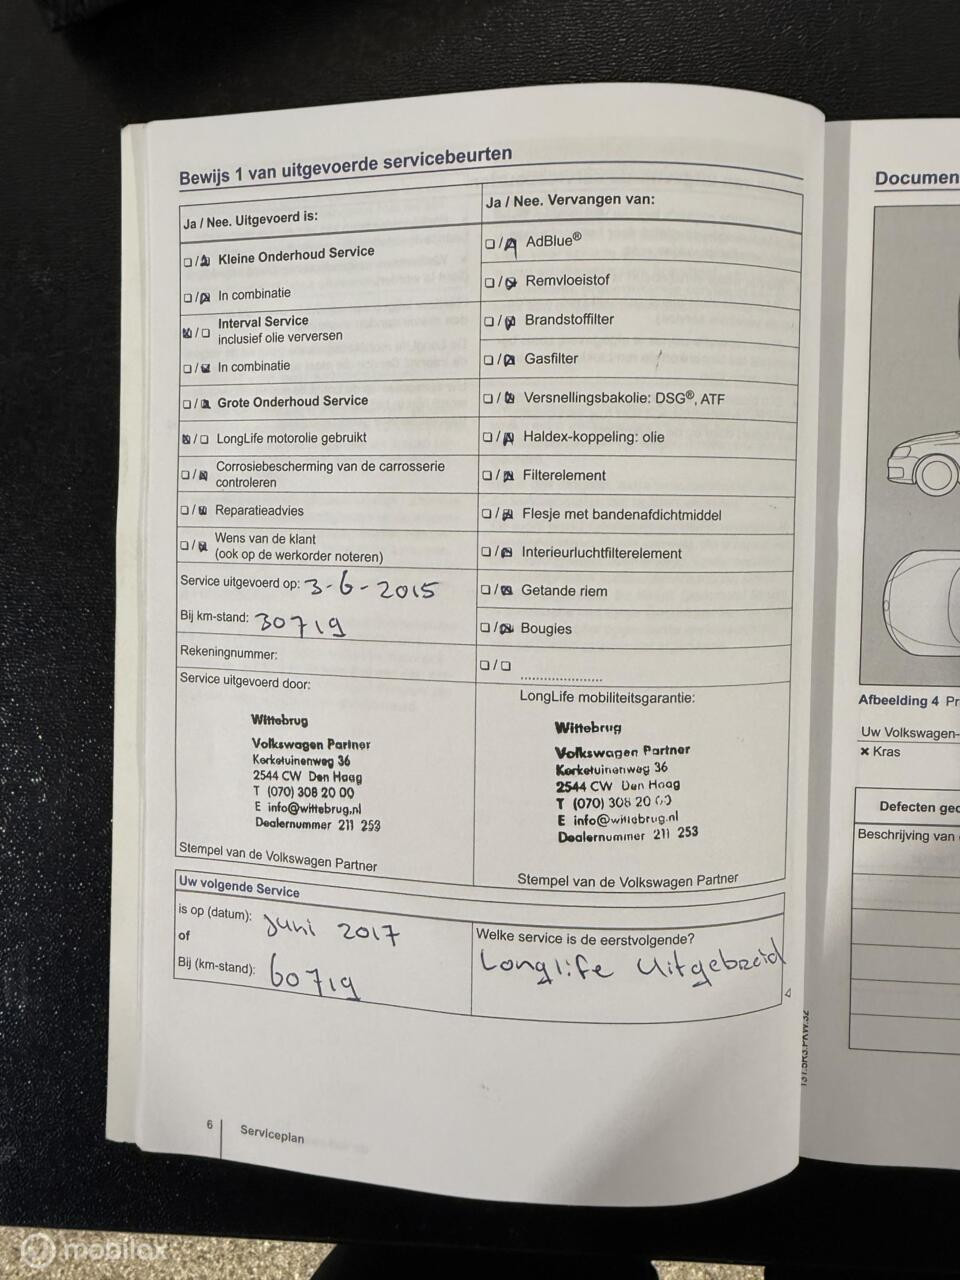 Bewijs 1 van uitgevoerde servicebeurten
Ja / Nee. Uitgevoerd is:
☐ / ☒ Kleine Onderhoud Service
☐ / ☒ In combinatie
☒ / ☐ Interval Service
inclusief olie verversen
☐ / ☒ In combinatie
☐ / ☒ Grote Onderhoud Service
☒ / ☐ LongLife motorolie gebruikt
☐ / ☒ Corrosiebescherming van de carrosserie
controleren
☐ / ☒ Reparatieadvies
☐ / ☒ Wens van de klant
(ook op de werkorder noteren)
Service uitgevoerd op: 3-6-2015
Bij km-stand: 30719
Rekeningnummer:
Service uitgevoerd door:
Wittebrug
Volkswagen Partner
Kerketuinenweg 36
2544 CW Den Haag
T (070) 308 20 00
E info@wittebrug.nl
Dealernummer 211 253
Stempel van de Volkswagen Partner
Ja / Nee. Vervangen van:
☐ / ☒ AdBlue®
☐ / ☒ Remvloeistof
☐ / ☒ Brandstoffilter
☐ / ☒ Gasfilter
☐ / ☒ Versnellingsbakolie: DSG®, ATF
☐ / ☒ Haldex-koppeling: olie
☐ / ☒ Filterelement
☐ / ☒ Flesje met bandenafdichtmiddel
☐ / ☒ Interieurluchtfilterelement
☐ / ☒ Getande riem
☐ / ☒ Bougies
☐ / ☐ ......................
LongLife mobiliteitsgarantie:
Wittebrug
Volkswagen Partner
Kerketuinenweg 36
2544 CW Den Haag
T (070) 308 20 00
E info@wittebrug.nl
Dealernummer 211 253
Stempel van de Volkswagen Partner
Uw volgende Service
is op (datum): juni 2017
of
Bij (km-stand): 60719
Welke service is de eerstvolgende?
Longlife Uitgebreid
131.5R3.PKW.32
6 Serviceplan
Documen
Afbeelding 4 Pr
Uw Volkswagen-
× Kras
Defecten gec
Beschrijving van
mobilox